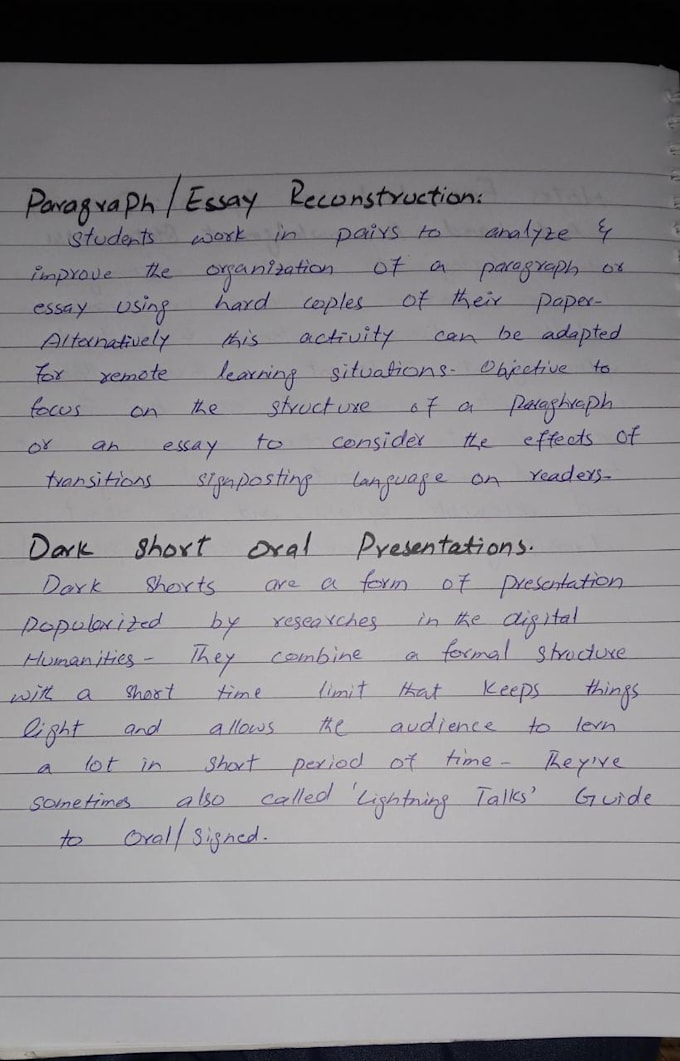 Paragraph/Essay Reconstruction:
Students work in pairs to analyze &
improve the organization of a paragraph or
essay using hard copies of their paper-
Alternatively this activity can be adapted
for remote learning situations- Objective to
focus on the structure of a Paraghraph
or an essay to consider the effects of
transitions signposting language on readers-
Dark Short Oral Presentations.
Dark Shorts are a form of presentation
popularized by researches in the digital
Humanities- They combine a formal structure
with a short time limit that keeps things
light and allows the audience to lern
a lot in short period of time- They've
sometimes also called 'Lightning Talks' Guide
to Oral/Signed.